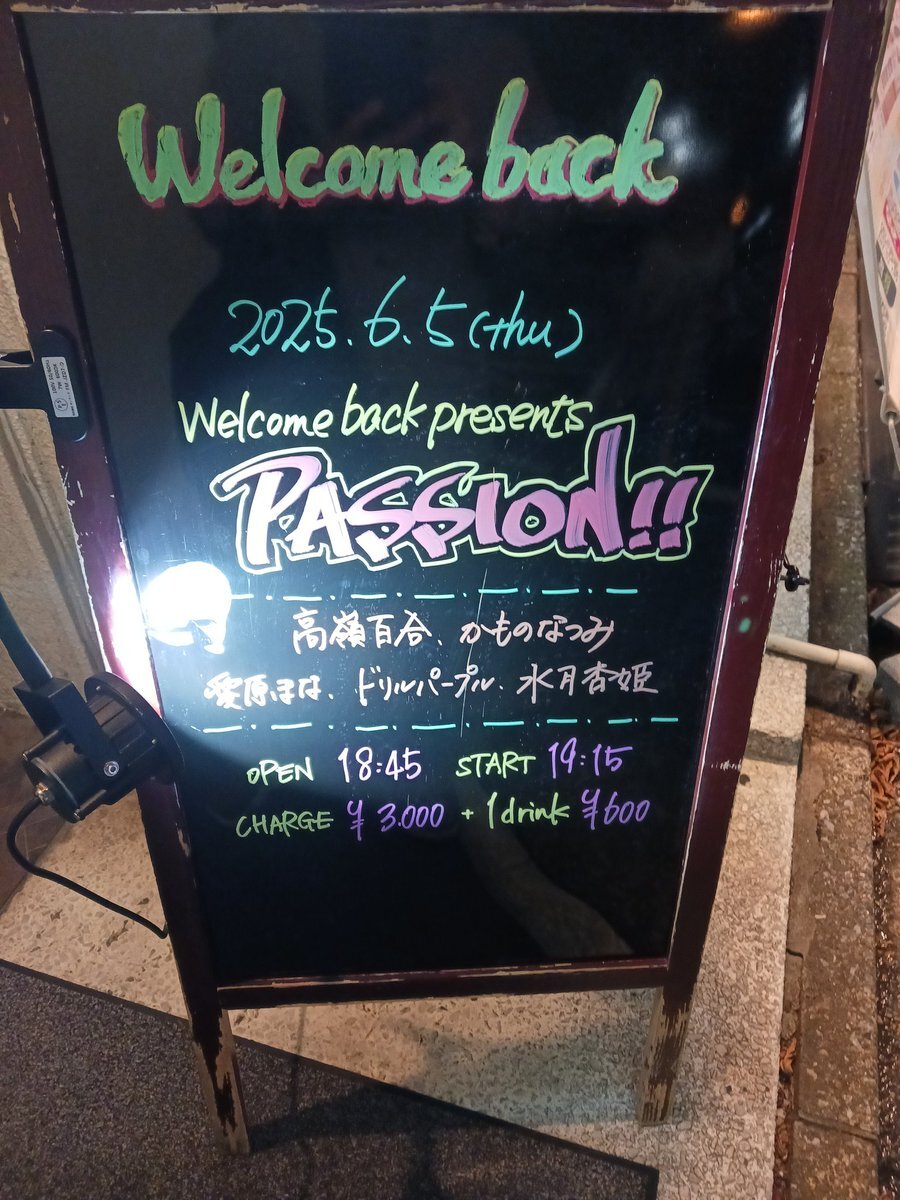 Welcome back
2025.6.5(thu)
Welcome back presents
PASSION!!
高嶺百合、かものなつみ
愛原まな、ドリルパープル、水月杏姫
OPEN 18:45 START 19:15
CHARGE ¥3.000 + 1drink ¥600